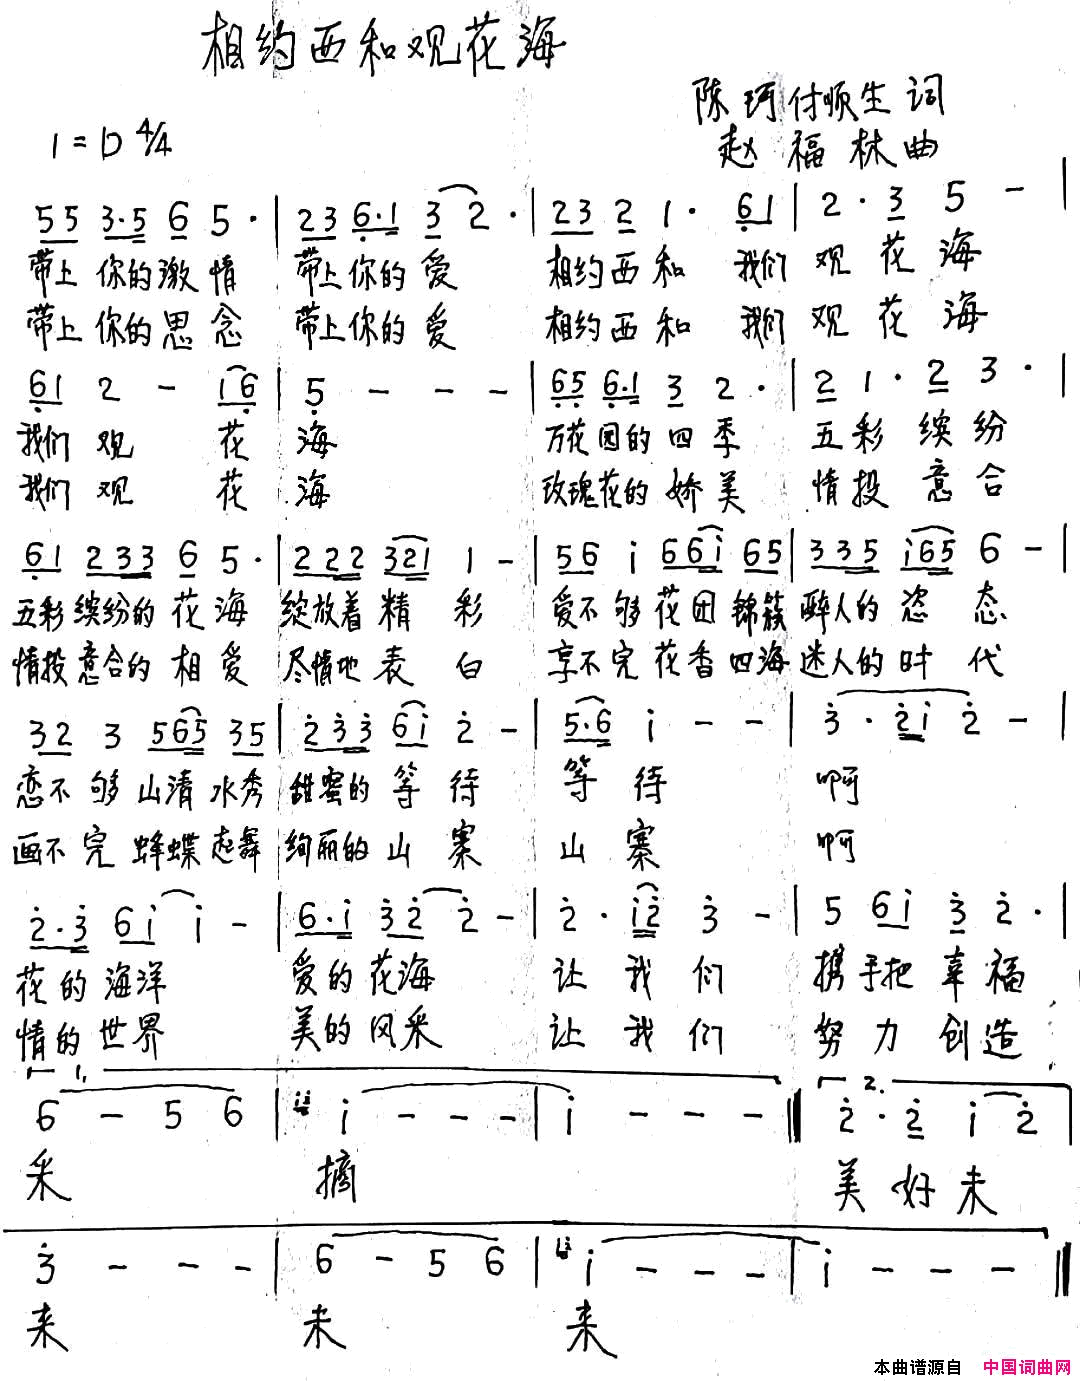 相约西和观花海
陈珂付顺生 词
1=D 4/4
赵福林曲
55 3·5 6 5· | 23 6·1 3 2· | 23 2 1· 61 | 2·3 5 - |
带上 你的激情 带上你的爱 相约西和 我们 观花海
带上 你的思念 带上你的爱 相约西和 我们 观花海
61 2 - 16 | 5 - - - | 65 6·1 3 2· | 2 1· 2 3· |
我们 观 花 海 万花园的四季 五彩缤纷
我们 观 花 海 玫瑰花的娇美 情投意合
61 233 6 5· | 222 321 1 - | 56 i 66i 65 | 335 i65 6 - |
五彩缤纷的花海 绽放着精彩 爱不够花团锦簇 醉人的恣态
情投意合的相爱 尽情地表白 享不完花香四海 迷人的时代
32 3 565 35 | 233 6i 2 - | 5·6 i - - | 3·2i 2 - |
恋不够山清水秀 甜蜜的等待 等待 啊
画不完蜂蝶起舞 绚丽的山寨 山寨 啊
2·3 6i i - | 6·i 32 2 - | 2·i2 3 - | 5 6i 3 2· |
花的海洋 爱的花海 让我们 携手把幸福
情的世界 美的风采 让我们 努力创造
1. 2.
6 - 5 6 | i - - - | i - - - ‖ 2·2 i 2
采 摘 美好未
3 - - - | 6 - 5 6 | i - - - | i - - - ‖
来 未 来
本曲谱源自 中国词曲网